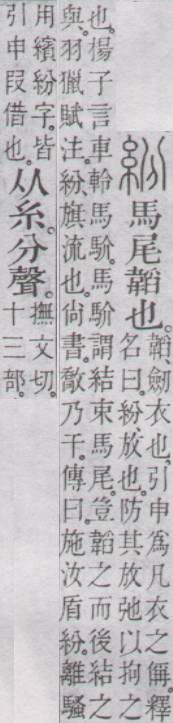 紛馬尾韜也。韜、劒衣也。引申爲凡衣之偁。釋
名曰。紛、放也。防其放弛以拘之
也。楊子言車軨馬。馬謂結束馬尾。豈韜之而後結之
與。羽獵賦注。紛、旗流也。尙書敿乃干。傳曰。施汝盾紛。離騷
用繽紛字。皆
引申叚借也。从糸。分聲。撫文切。
十三部。